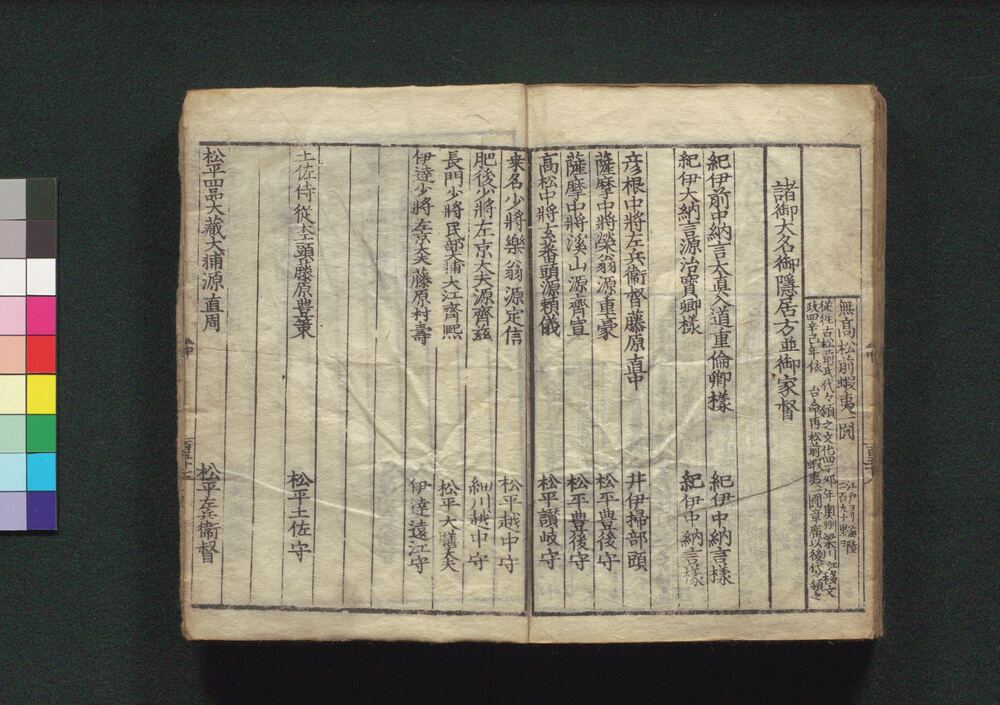 無高 松前蝦夷一圓
江戸ヨリ海陸
三百九十里ヨ
従往古松前氏代々領之文化四丁卯年奥州梁川江移文
政四辛巳年依 台命再松前蝦夷一圓章廣以後代々領之
諸御大名御隠居方並御家督
紀伊前中納言太真入道重倫卿様 紀伊中納言様
紀伊大納言源治寳卿様 紀伊中納言様
彦根中將左兵衞督藤原直中 井伊掃部頭
薩摩中將榮翁源重豪 松平豊後守
薩摩中將溪山源齊宣 松平豊後守
高松中將玄蕃頭源頼儀 松平讃岐守
桒名少將樂翁源定信 松平越中守
肥後少將左京大夫源齊茲 細川越中守
長門少將民部大輔大江齊熙 松平大膳大夫
伊達少將左京大夫藤原村壽 伊達遠江守
土佐侍従 藤原豊策 松平土佐守
松平四品大藏大輔源直周 松平左兵衞督